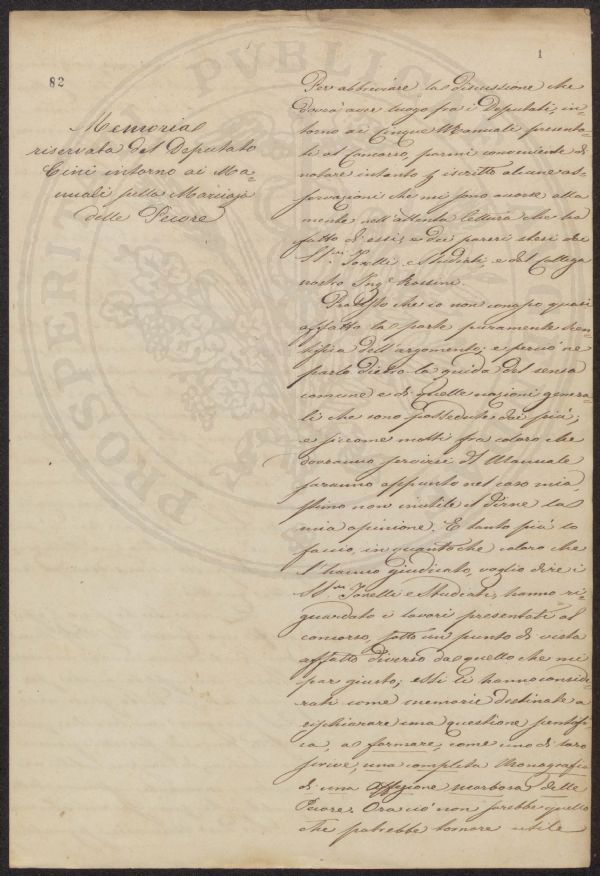 1
82
Memoria
riservata del Deputato
Cini intorno ai Ma=
nuali sulla Marciaja
delle Pecore
Per abbreviare la discussione che
dovrà aver luogo fra i Deputati, in=
torno ai Cinque Manuali presenta=
ti al Concorso, parmi conveniente di
notare intanto p iscritto alcune os=
servazioni che mi sono accorse alla
mente nell'attenta lettura che ho
fatto di essi, e dei pareri stesi dai
SS.ri Tonelli e Studiati, e del Collega
nostro Ing.e Rossini.
Protesto che io non conosco quasi
affatto la parte puramente scien=
tifica dell'argomento; e perciò ne
parlo dietro la guida del senso
comune e di quelle nozioni genera=
li che sono possedute dai più;
e siccome molti fra coloro che
dovranno servirsi del Manuale
saranno appunto nel caso mio,
stimo non inutile il dirne la
mia opinione. E tanto più lo
faccio, in quanto che coloro che
l'hanno giudicato, voglio dire i
SS.ri Tonelli e Studiati, hanno ri=
guardato i lavori presentati al
concorso, sotto un punto di vista
affatto diverso da quello che mi
par giusto; essi li hanno conside=
rati come memorie destinate a
rischiarare una questione scientifi=
ca, a formare, come uno di loro
scrive, una completa Monografia
di una affezione morbosa delle
Pecore. Ora ciò non sarebbe quello
che potrebbe tornare utile